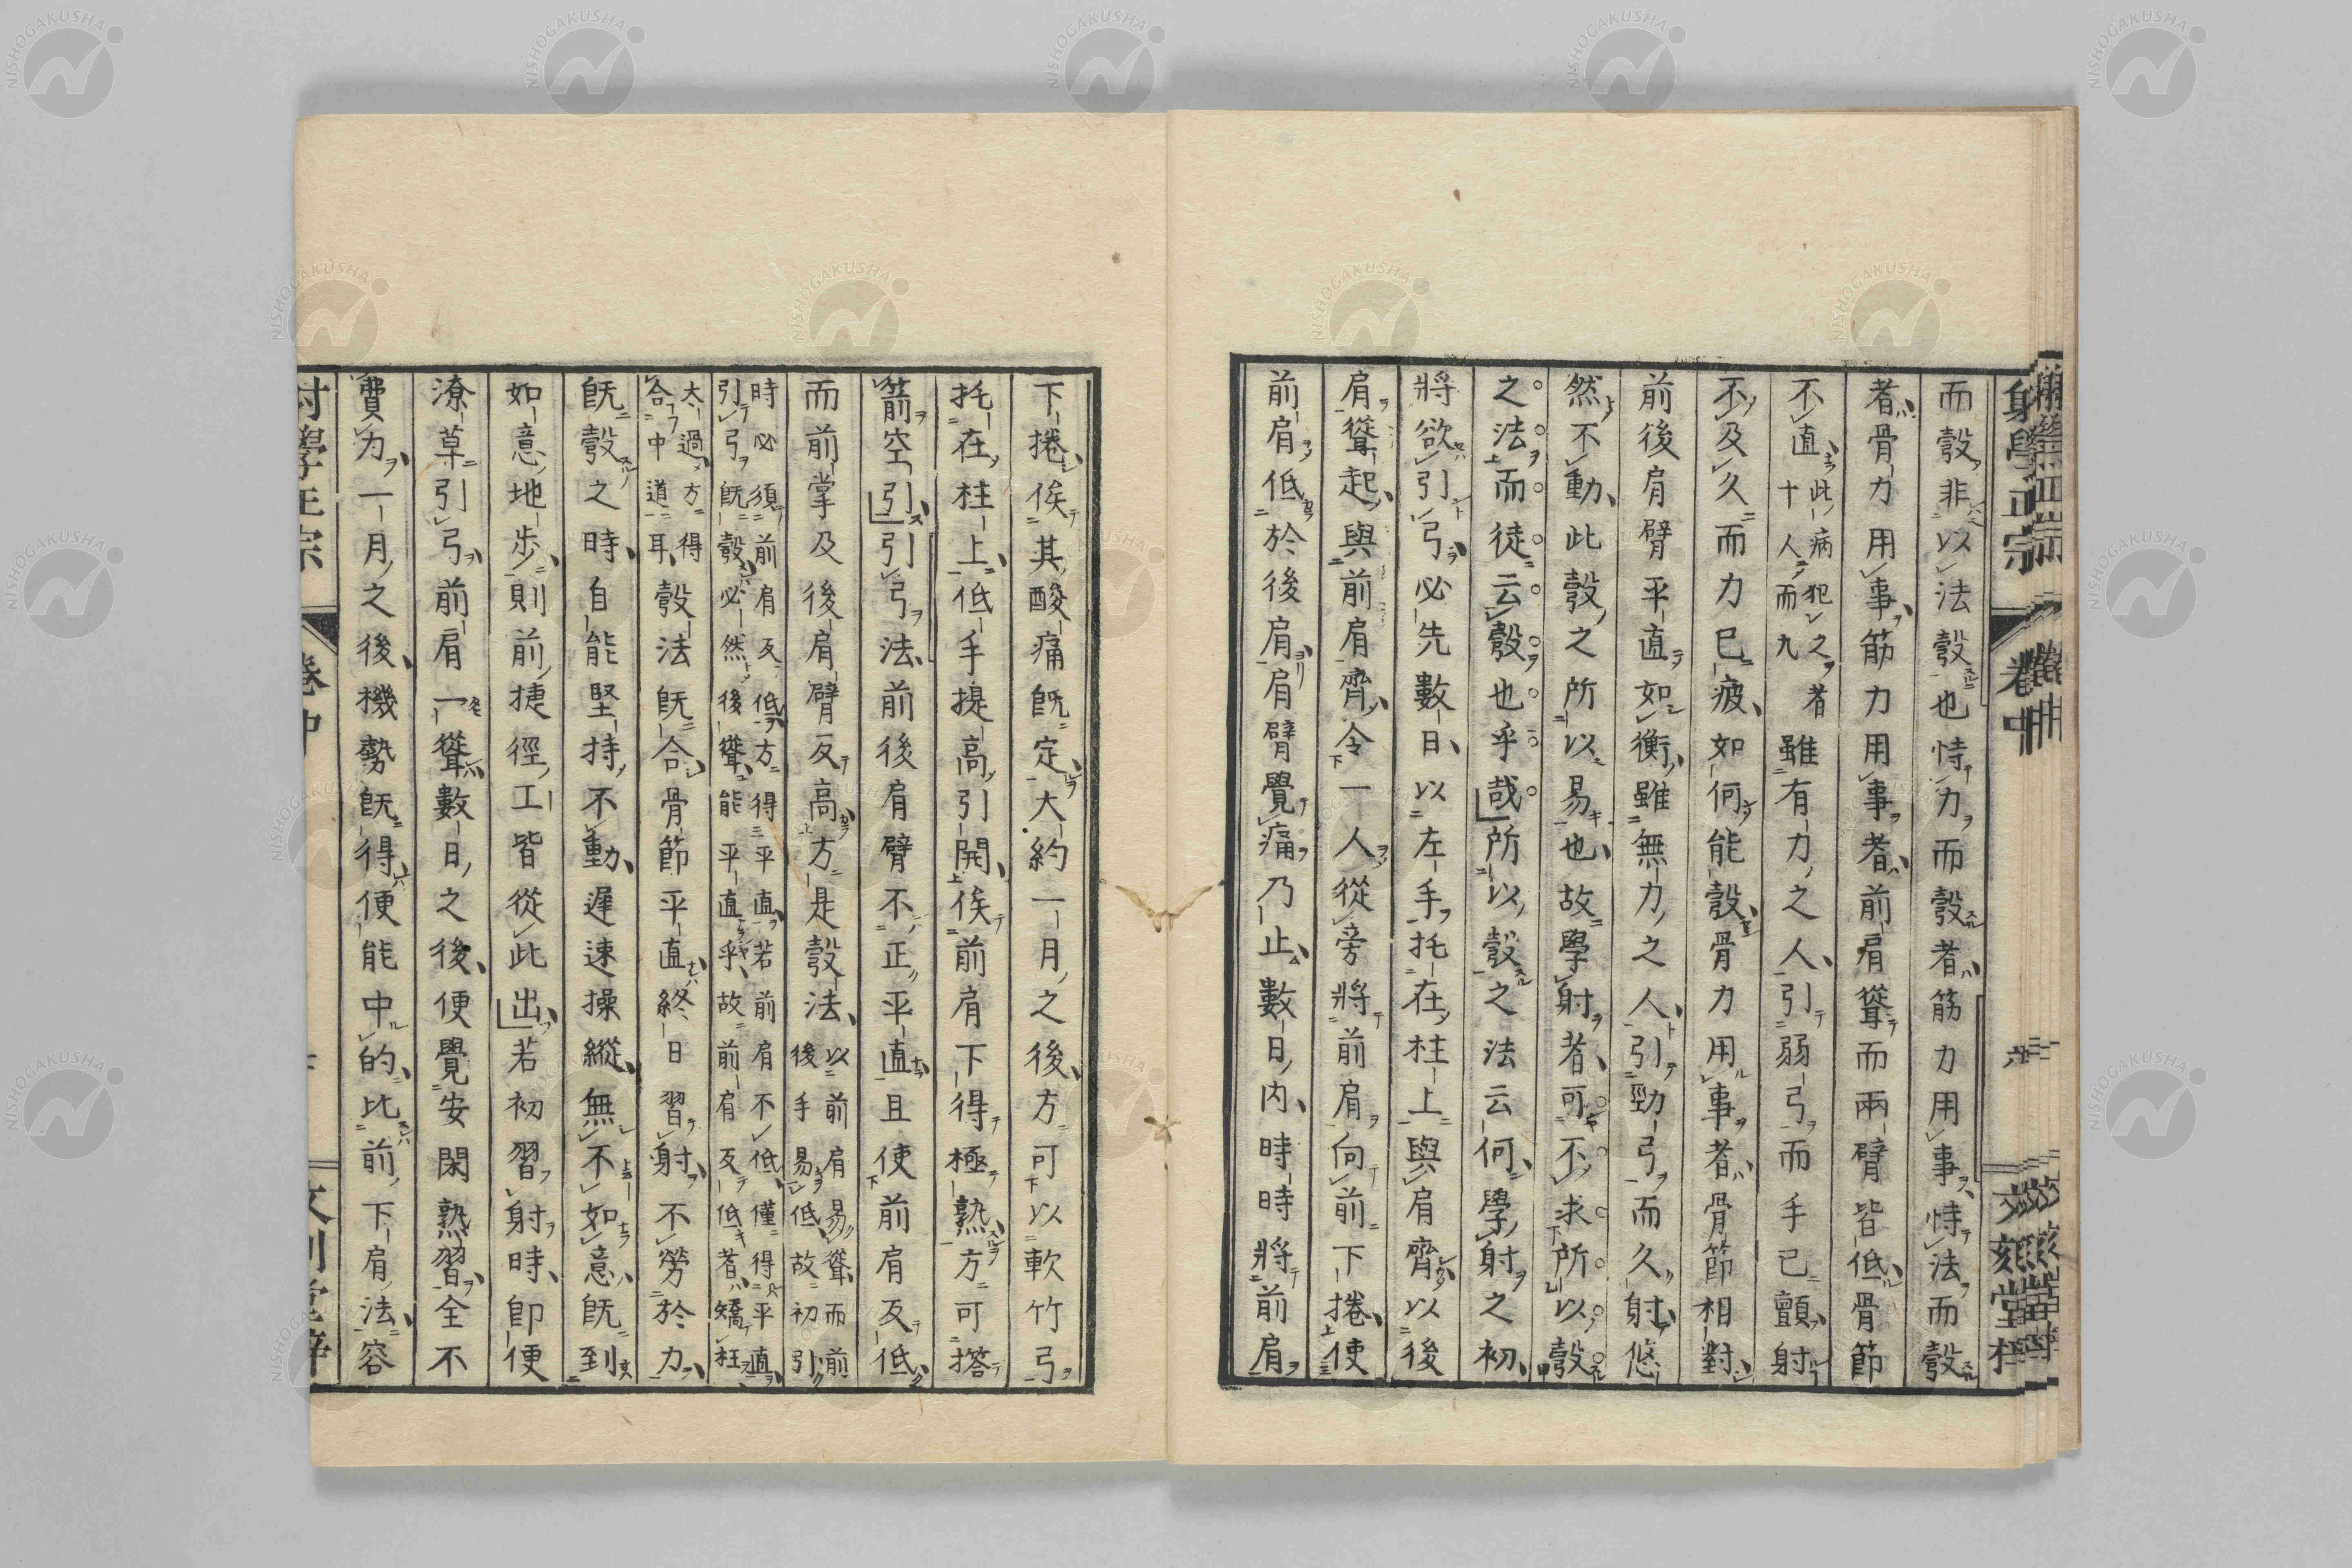 而彀非以法彀也恃力而彀者筋力用事恃法而彀
者骨力用事筋力用事者前肩聳而兩臂皆低骨節
不直此病犯之者十人而九雖有力之人引弱弓而手已顫射
不及久而力已疲如何能彀骨力用事者骨節相對
前後肩臂平直如衡雖無力之人引勁弓而久射悠
然不動此彀之所以易也故學射者可不求所以彀
之法而徒云彀也乎哉所以彀之法云何學射之初
將欲引弓必先數日以左手托在柱上與肩齊以後
肩聳起與前肩齊令一人從旁將前肩向前下捲使
前肩低於後肩肩臂覺痛乃止數日内時時將前肩
下捲俟其酸痛既定大約一月之後方可以軟竹弓
托在柱上低手提高引開俟前肩下得極熟方可撘
箭空引引弓法前後肩臂不正平直且使前肩反低
而前掌及後肩臂反高方是彀法以前肩易聳而前後手易低故初引
時必須前肩反低方得平直若前肩不低僅得平直引弓既彀必然後聳能平直乎故前肩反低者矯枉
太過方得合中道耳彀法既合骨節平直終日習射不勞於力
既彀之時自能堅持不動遲速操縱無不如意既到
如意地步則前捷徑工皆從此出若初習射時卽便
潦草引弓前肩一聳數日之後便覺安閑熟習全不
費力一月之後機勢既得便能中的比前下肩法容
射學正宗
卷中
六
文刻堂梓
NISHOGAKUSHA